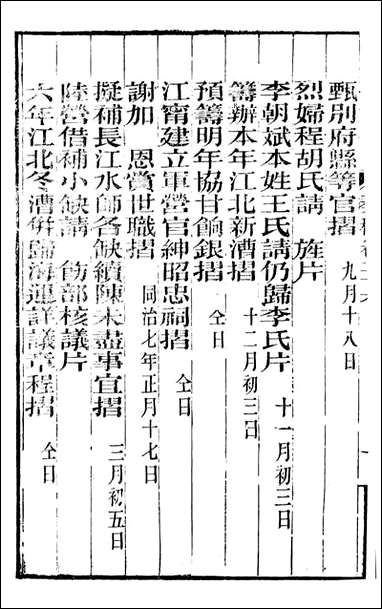 甄別府縣等官摺 九月十八日
烈婦程胡氏請 旌片
李朝斌本姓王氏請仍歸李氏片 十一月初三日
籌辦本年江北新漕摺 十二月初三日
預籌明年協甘餉銀摺 仝日
江甯建立軍營官紳昭忠祠摺 仝日
謝加 恩賞世職摺 同治七年正月十七日
擬補長江水師各缺續陳未盡事宜摺 三月初五日
陸營借補小缺請 飭部核議片
六年江北冬漕倂歸海運詳議章程摺 仝日